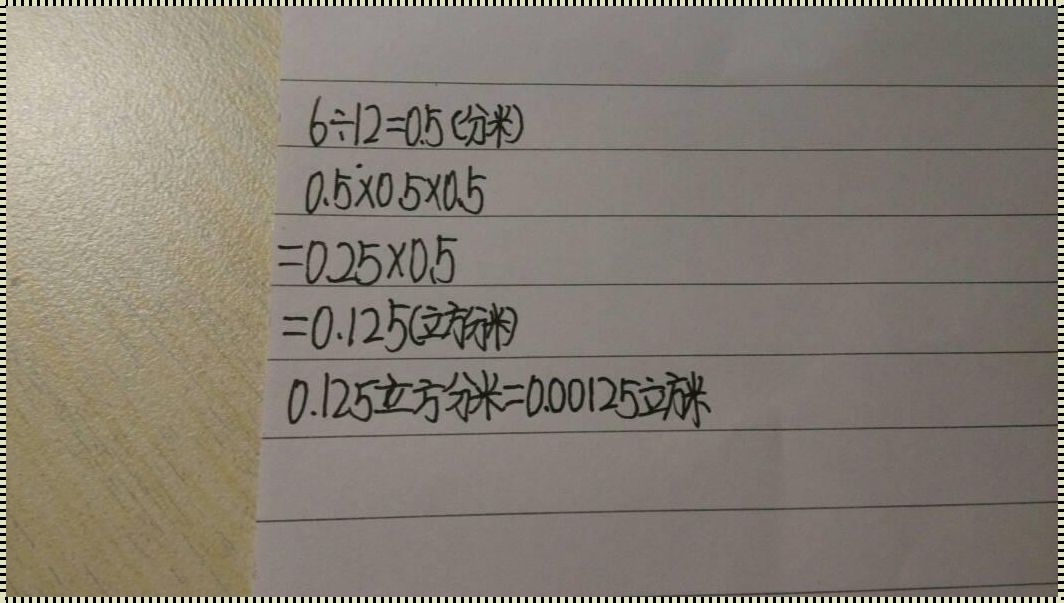 6÷12=0.5(分米)
0.5×0.5×0.5
=0.25×0.5
=0.125(立方分米)
0.125立方分米=0.00125立方米